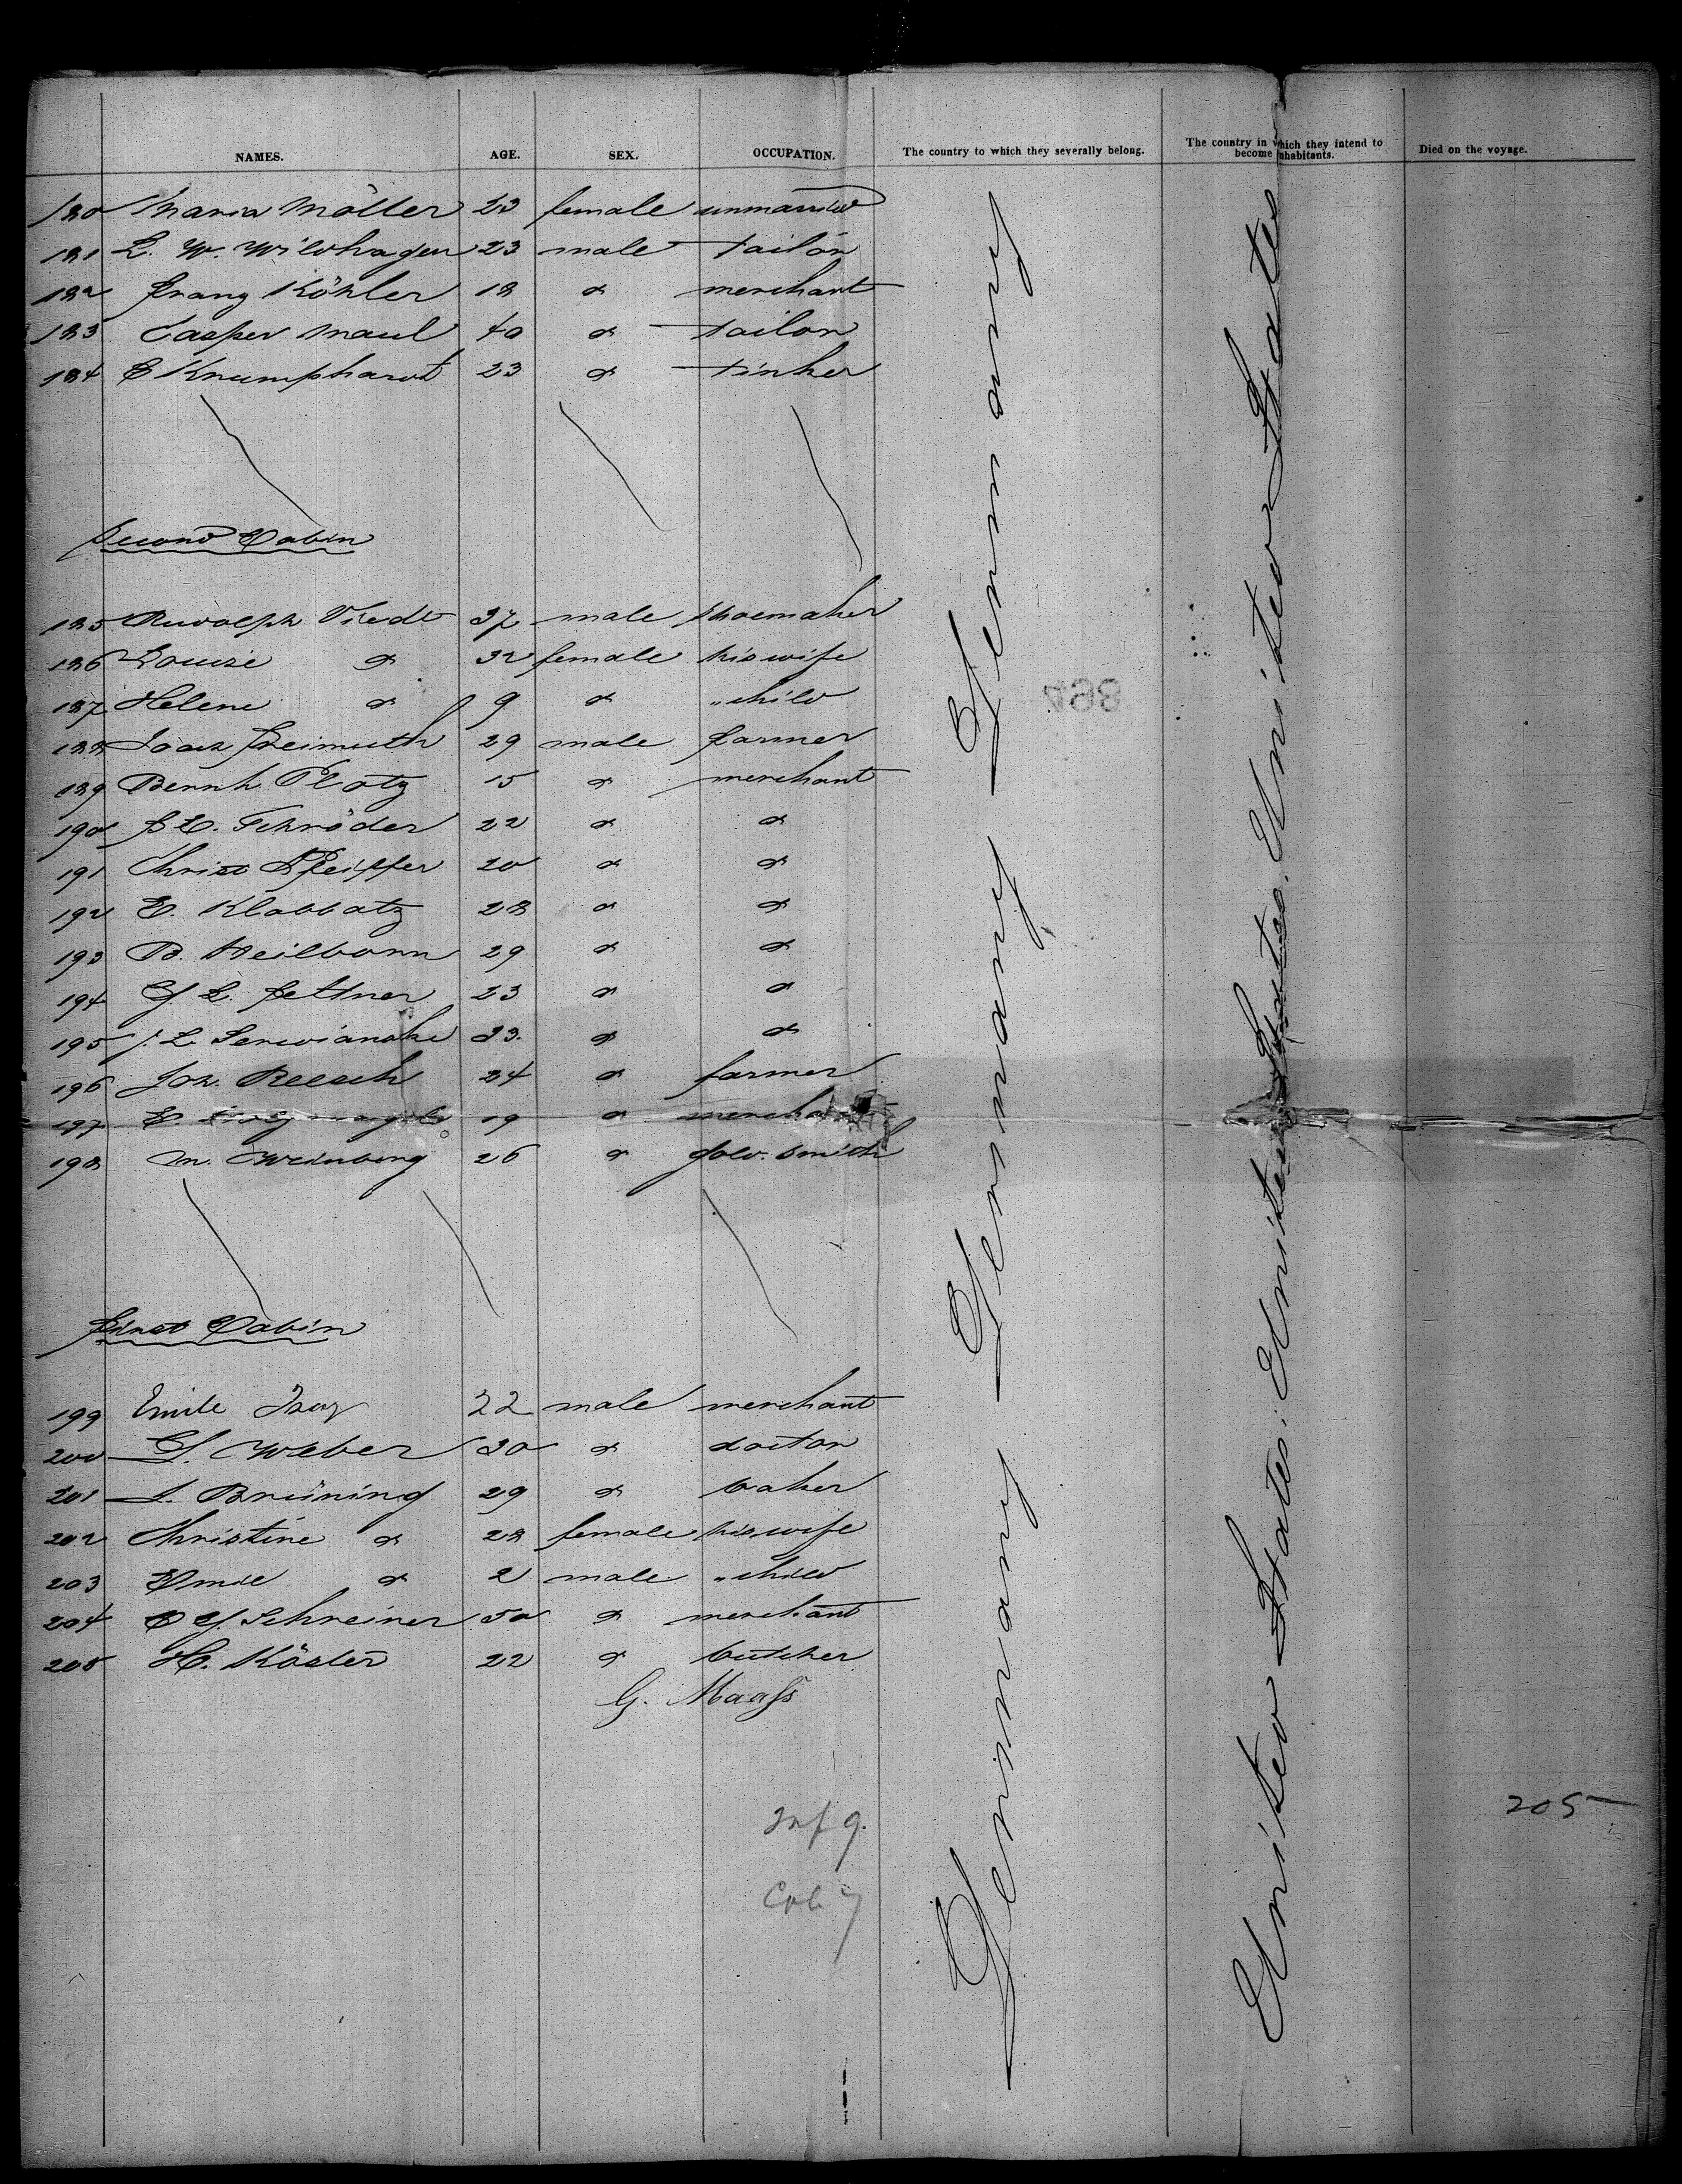 NAMES. AGE. SEX. OCCUPATION. The country to which they severally belong. The country in which they intend to become inhabitants. Died on the voyage.
180 Maria Möller 23 female unmarried
181 L. W. Wildhagen 23 male tailor
182 Franz Köhler 18 do merchant
183 Casper Maul 40 do tailor
184 C Krumphardt 23 do tinker
Second Cabin
185 Rudolph Viedt 37 male shoemaker
186 Louise do 32 female his wife
187 Helene do 9 do " child
188 Isaak Freimuth 29 male farmer
189 Bernh. Plotz 15 do merchant
190 F C. Schröder 22 do do
191 Christ Pfeiffer 20 do do
192 E. Klabbatz 28 do do
193 B. Heilborn 29 do do
194 G. L. Feltner 23 do do
195 J. L. 23. do do
196 Joh. Reesch 24 do farmer
197 E. 19 do merchant
198 M. Weinberg 26 do gold. smith
First Cabin
199 Emile Isay 22 male merchant
200 G. Weber 30 do doctor
201 L. Brüning 29 do baker
202 Christine do 28 female his wife
203 Emil do 2 male " child
204 C G. Schreiner 50 do merchant
205 H. Köster 22 do butcher
G. Maaß
Inf 9.
Cab. 7
Germany Germany Germany Germany
United States. United States. United States
498
205